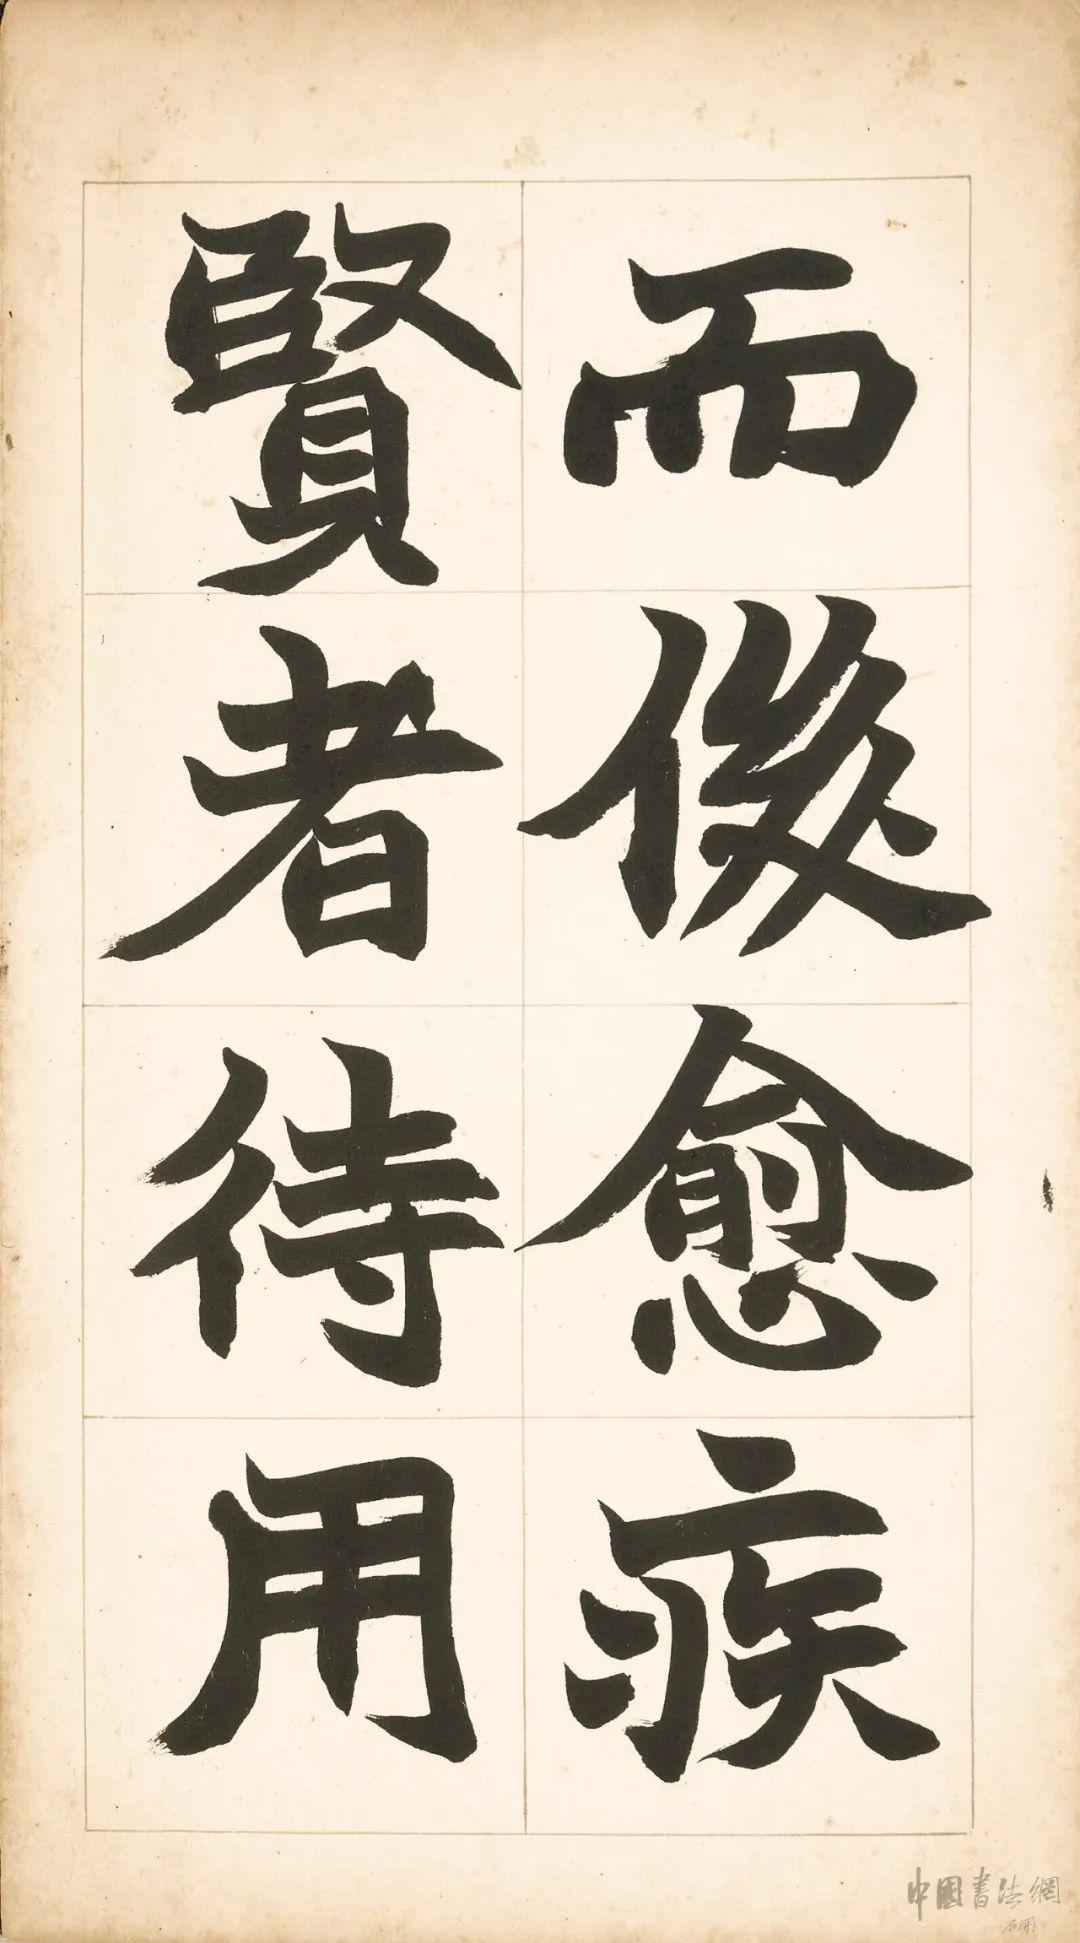 而後愈疾
賢者待用
中國書法網